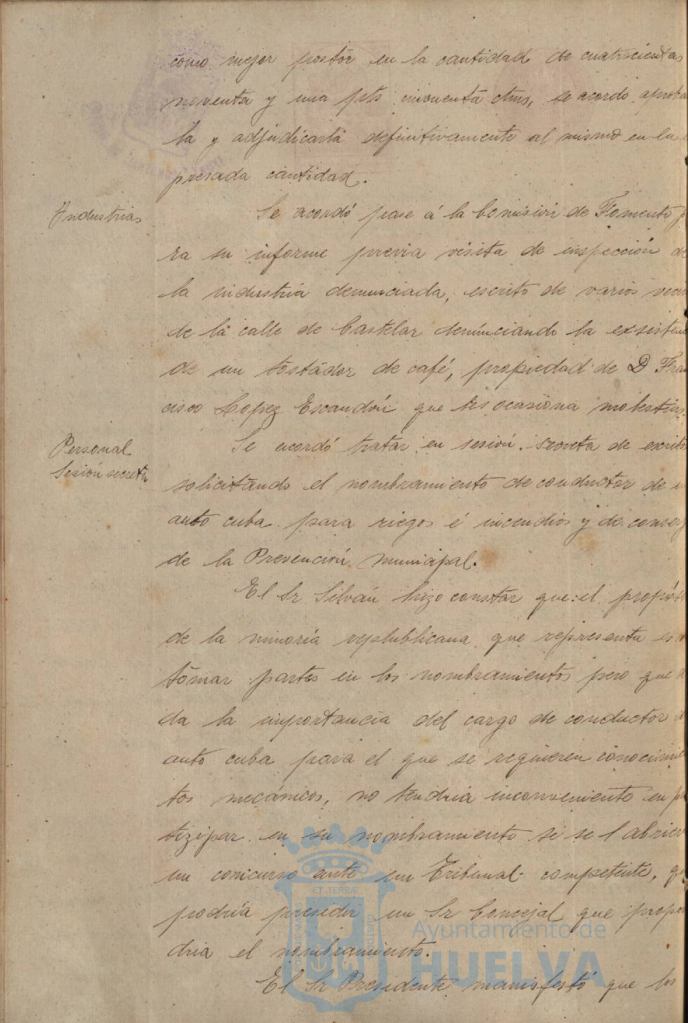 como mejor postor en la cantidad de cuatrocientas
noventa y una pts cincuenta ctms, se acordó aproba
la y adjudicarla definitivamente al mismo en la
presada cantidad.
Industrias
Se acordó pase á la Comisión de Fomento p
ra su informe previa visita de inspección de
la industria denunciada, escrito de varios vecin
de la calle de Castelar denunciando la existen
de un tostador de café, propiedad de D Fran
cisco Lopez Escandón que les ocasiona molestias.
Personal
Sesión secreta
Se acordó tratar en sesión secreta de escrito
solicitando el nombramiento de conductor de
auto cuba para riegos é incendios y de conserj
de la Prevención municipal.
El Sr Silván hizo constar que el propósi
de la minoría republicana que representa es
tomar partes en los nombramientos pero que
da la importancia del cargo de conductor d
auto cuba para el que se requieren conocimie
tos mecánicos, no tendria inconveniente en pa
tizipar en su nombramiento si se l abrier
un concurso ante un Tribunal competente, q
podría presidir un Sr Concejal que propon
dria el nombramiento.
El Sr Presidente manifestó que los
Ayuntamiento de
HUELVA